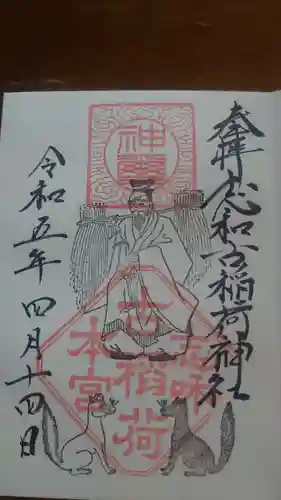 奉拝 志和古稲荷神社
神璽
志和
古稲荷
本宮
令和五年 四月十四日